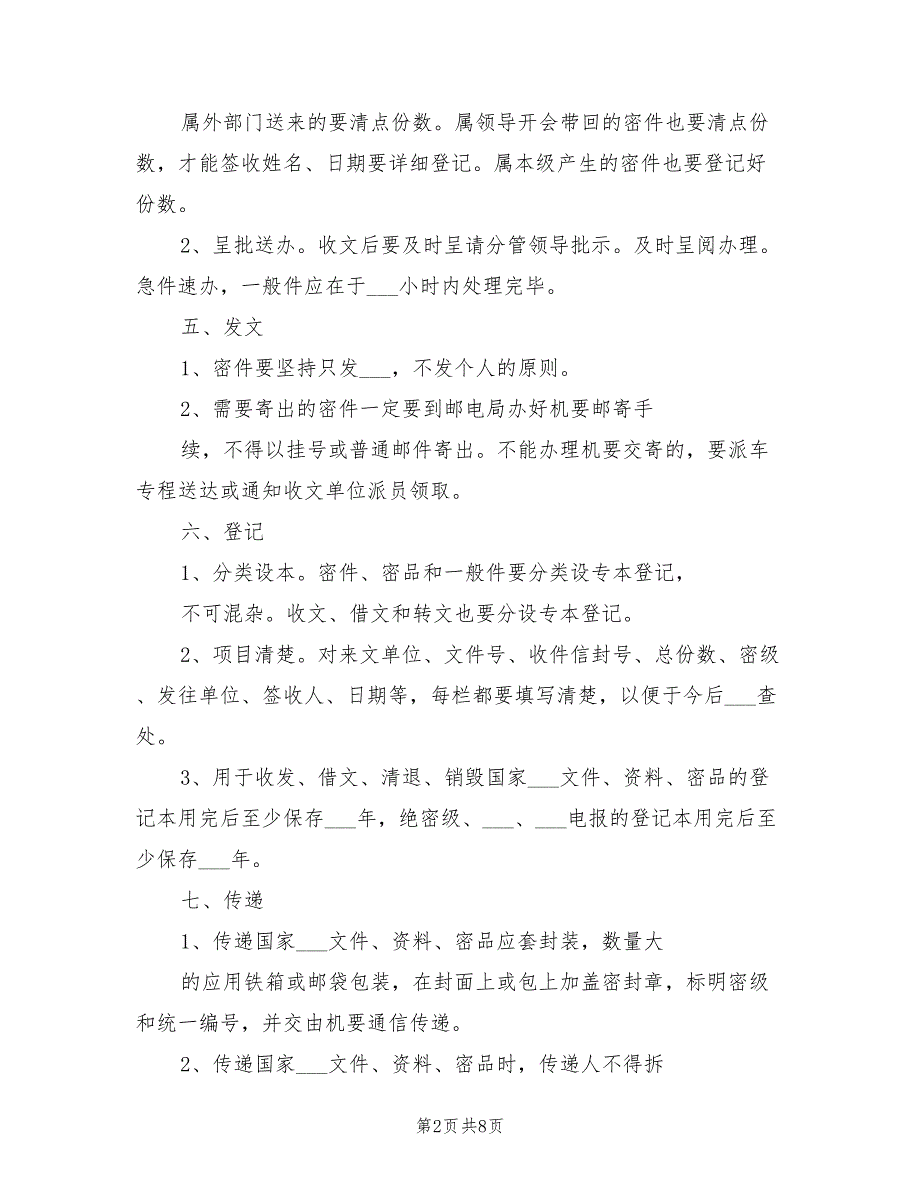 属外部门送来的要清点份数。属领导开会带回的密件也要清点份
数，才能签收姓名、日期要详细登记。属本级产生的密件也要登记好
份数。
2、呈批送办。收文后要及时呈请分管领导批示。及时呈阅办理。
急件速办，一般件应在于___小时内处理完毕。
五、发文
1、密件要坚持只发___，不发个人的原则。
2、需要寄出的密件一定要到邮电局办好机要邮寄手
续，不得以挂号或普通邮件寄出。不能办理机要交寄的，要派车
专程送达或通知收文单位派员领取。
六、登记
1、分类设本。密件、密品和一般件要分类设专本登记，
不可混杂。收文、借文和转文也要分设专本登记。
2、项目清楚。对来文单位、文件号、收件信封号、总份数、密级
、发往单位、签收人、日期等，每栏都要填写清楚，以便于今后___查
处。
3、用于收发、借文、清退、销毁国家___文件、资料、密品的登
记本用完后至少保存___年，绝密级、___、___电报的登记本用完后至
少保存___年。
七、传递
1、传递国家___文件、资料、密品应套封装，数量大
的应用铁箱或邮袋包装，在封面上或包上加盖密封章，标明密级
和统一编号，并交由机要通信传递。
2、传递国家___文件、资料、密品时，传递人不得拆
第2页 共8页